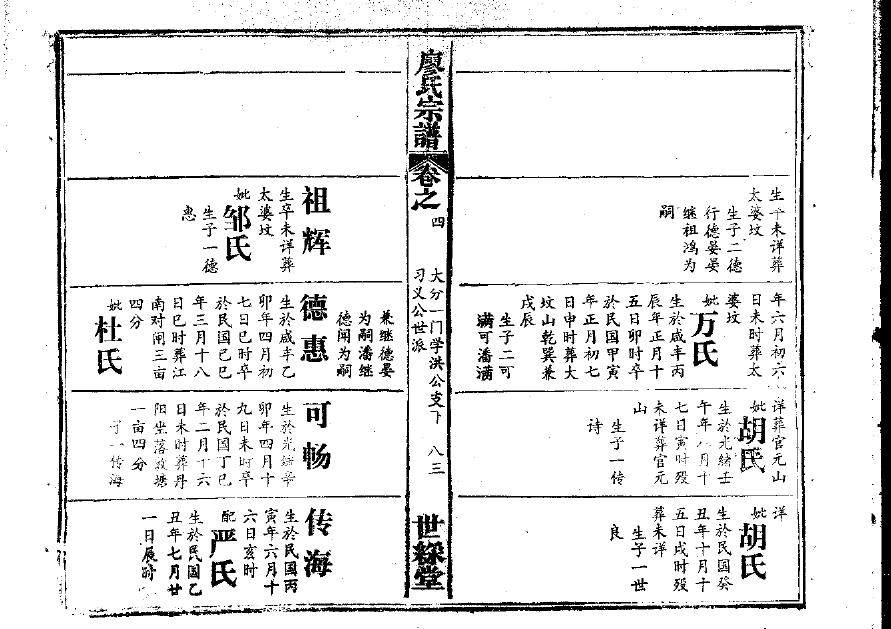 生卒未详葬
太婆坟
生子二德
行德晏晏
继祖鸿为
嗣
年六月初六
日未时葬太
婆坟
妣
万氏
生於咸丰丙
辰年正月十
五日卯时卒
於民国甲寅
年正月初七
日申时葬大
坟山乾巽兼
戌辰
生子二可
满可潘满
兼继德晏
为嗣潘继
德闻为嗣
详葬官元山
妣
胡氏
生於光绪壬
午年八月十
七日寅时殁
未详葬官元
山
生子一传
诗
详
妣
胡氏
生於民国癸
丑年十月十
五日戌时殁
葬未详
生子一世
良
廖氏宗譜
卷之
四
大分一门学洪公支下
习义公世派
八三
世綵堂
祖辉
生卒未详葬
太婆坟
妣
邹氏
生子一德
惠
德惠
生於咸丰乙
卯年四月初
七日巳时卒
於民国己巳
年三月十八
日巳时葬江
南对闸三亩
四分
妣
杜氏
可畅
生於光绪辛
卯年四月十
九日未时卒
於民国丁巳
年二月十六
日未时葬丹
阳坐落敦塘
一亩四分
子一传海
传海
生於民国丙
寅年六月十
六日亥时
配
严氏
生於民国乙
丑年七月廿
一日辰时